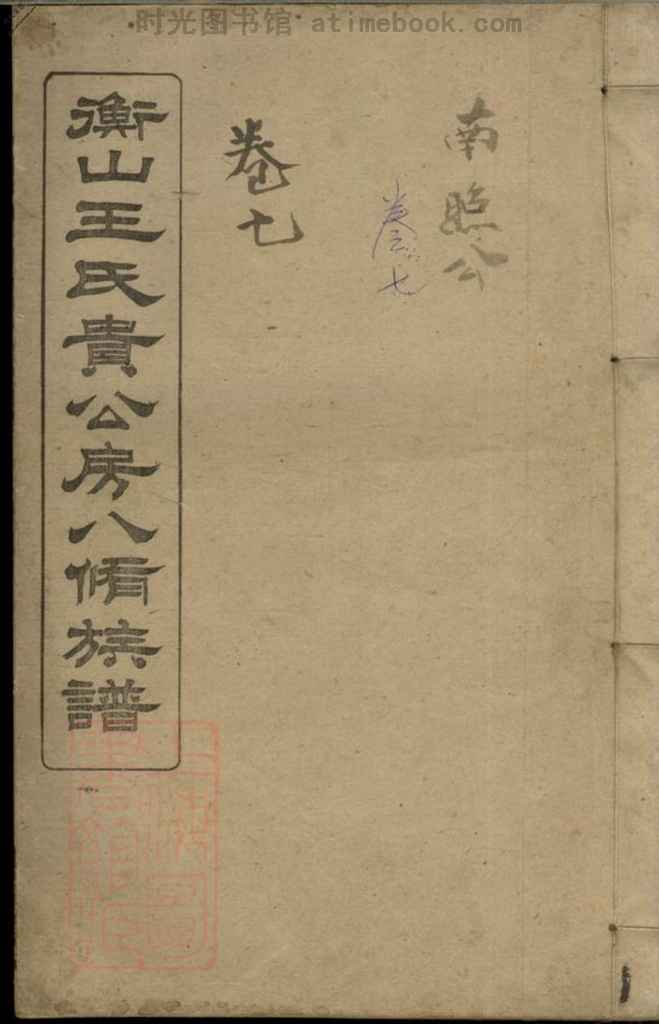 时光图书馆 atimebook.com
南照公
卷七
卷七
衡山王氏貴公房八脩族譜